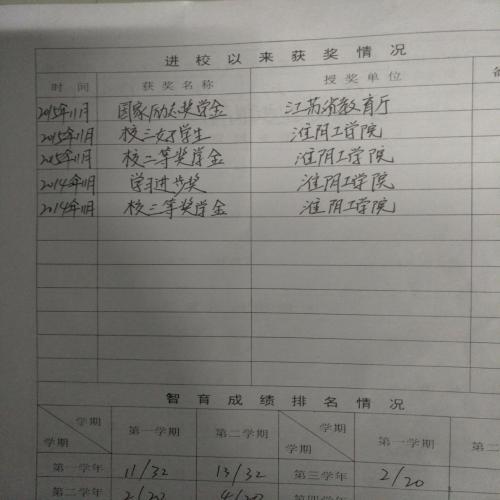 进校以来获奖情况
时间 获奖名称 授奖单位
2015年11月 国家励志奖学金 江苏省教育厅
2015年11月 校三好学生 淮阴工学院
2015年11月 校二等奖学金 淮阴工学院
2014年11月 学习进步奖 淮阴工学院
2014年11月 校三等奖学金 淮阴工学院
智育成绩排名情况
学期 第一学期 第二学期 学期 第一学期
学期 学期
第一学年 11/32 13/32 第三学年 2/20
第二学年